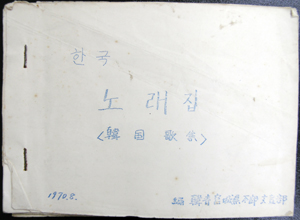 한국
노래집
<韓国歌集>
1970.8.
編 韓青